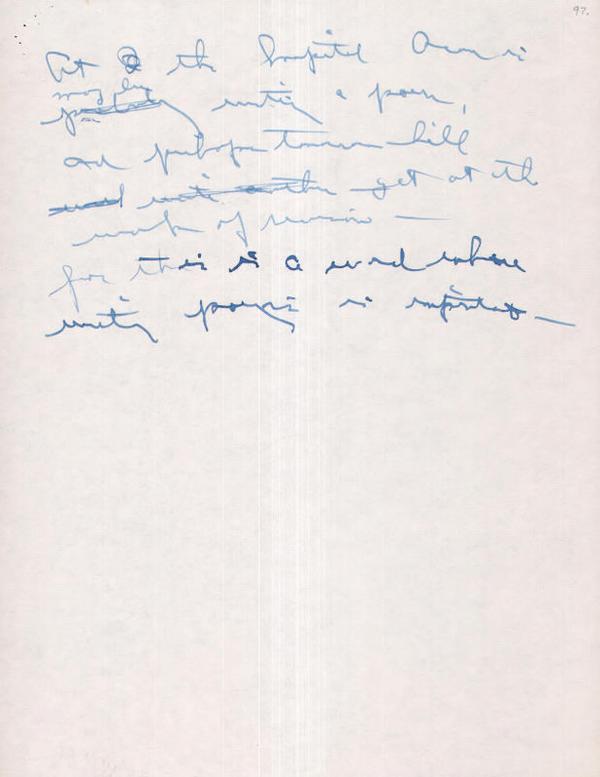 97.
At the hospital is
maybe
writing a poem,
and perhaps tomorrow he'll
get at the
work of revision —
for this is a world where
writing poems is important —